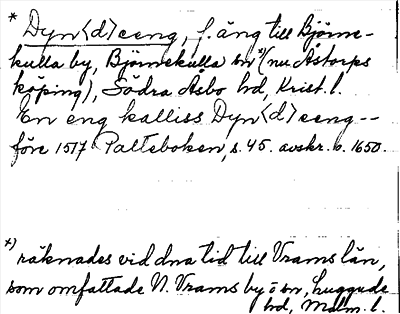 * Dyn<d>eeng, f. äng till Björne-
kulla by, Björnekulla sn *) (nu Åstorps
köping), Södra Åsbo hd, Krist. l.
En eng kalliss Dyn<d>eeng --
före 1517 Palteboken, s. 45. avskr. o. 1650.
*) räknades vid dna tid till Vrams län,
som omfattade N. Vrams by o sn, Luggude
hd, Malm. l.